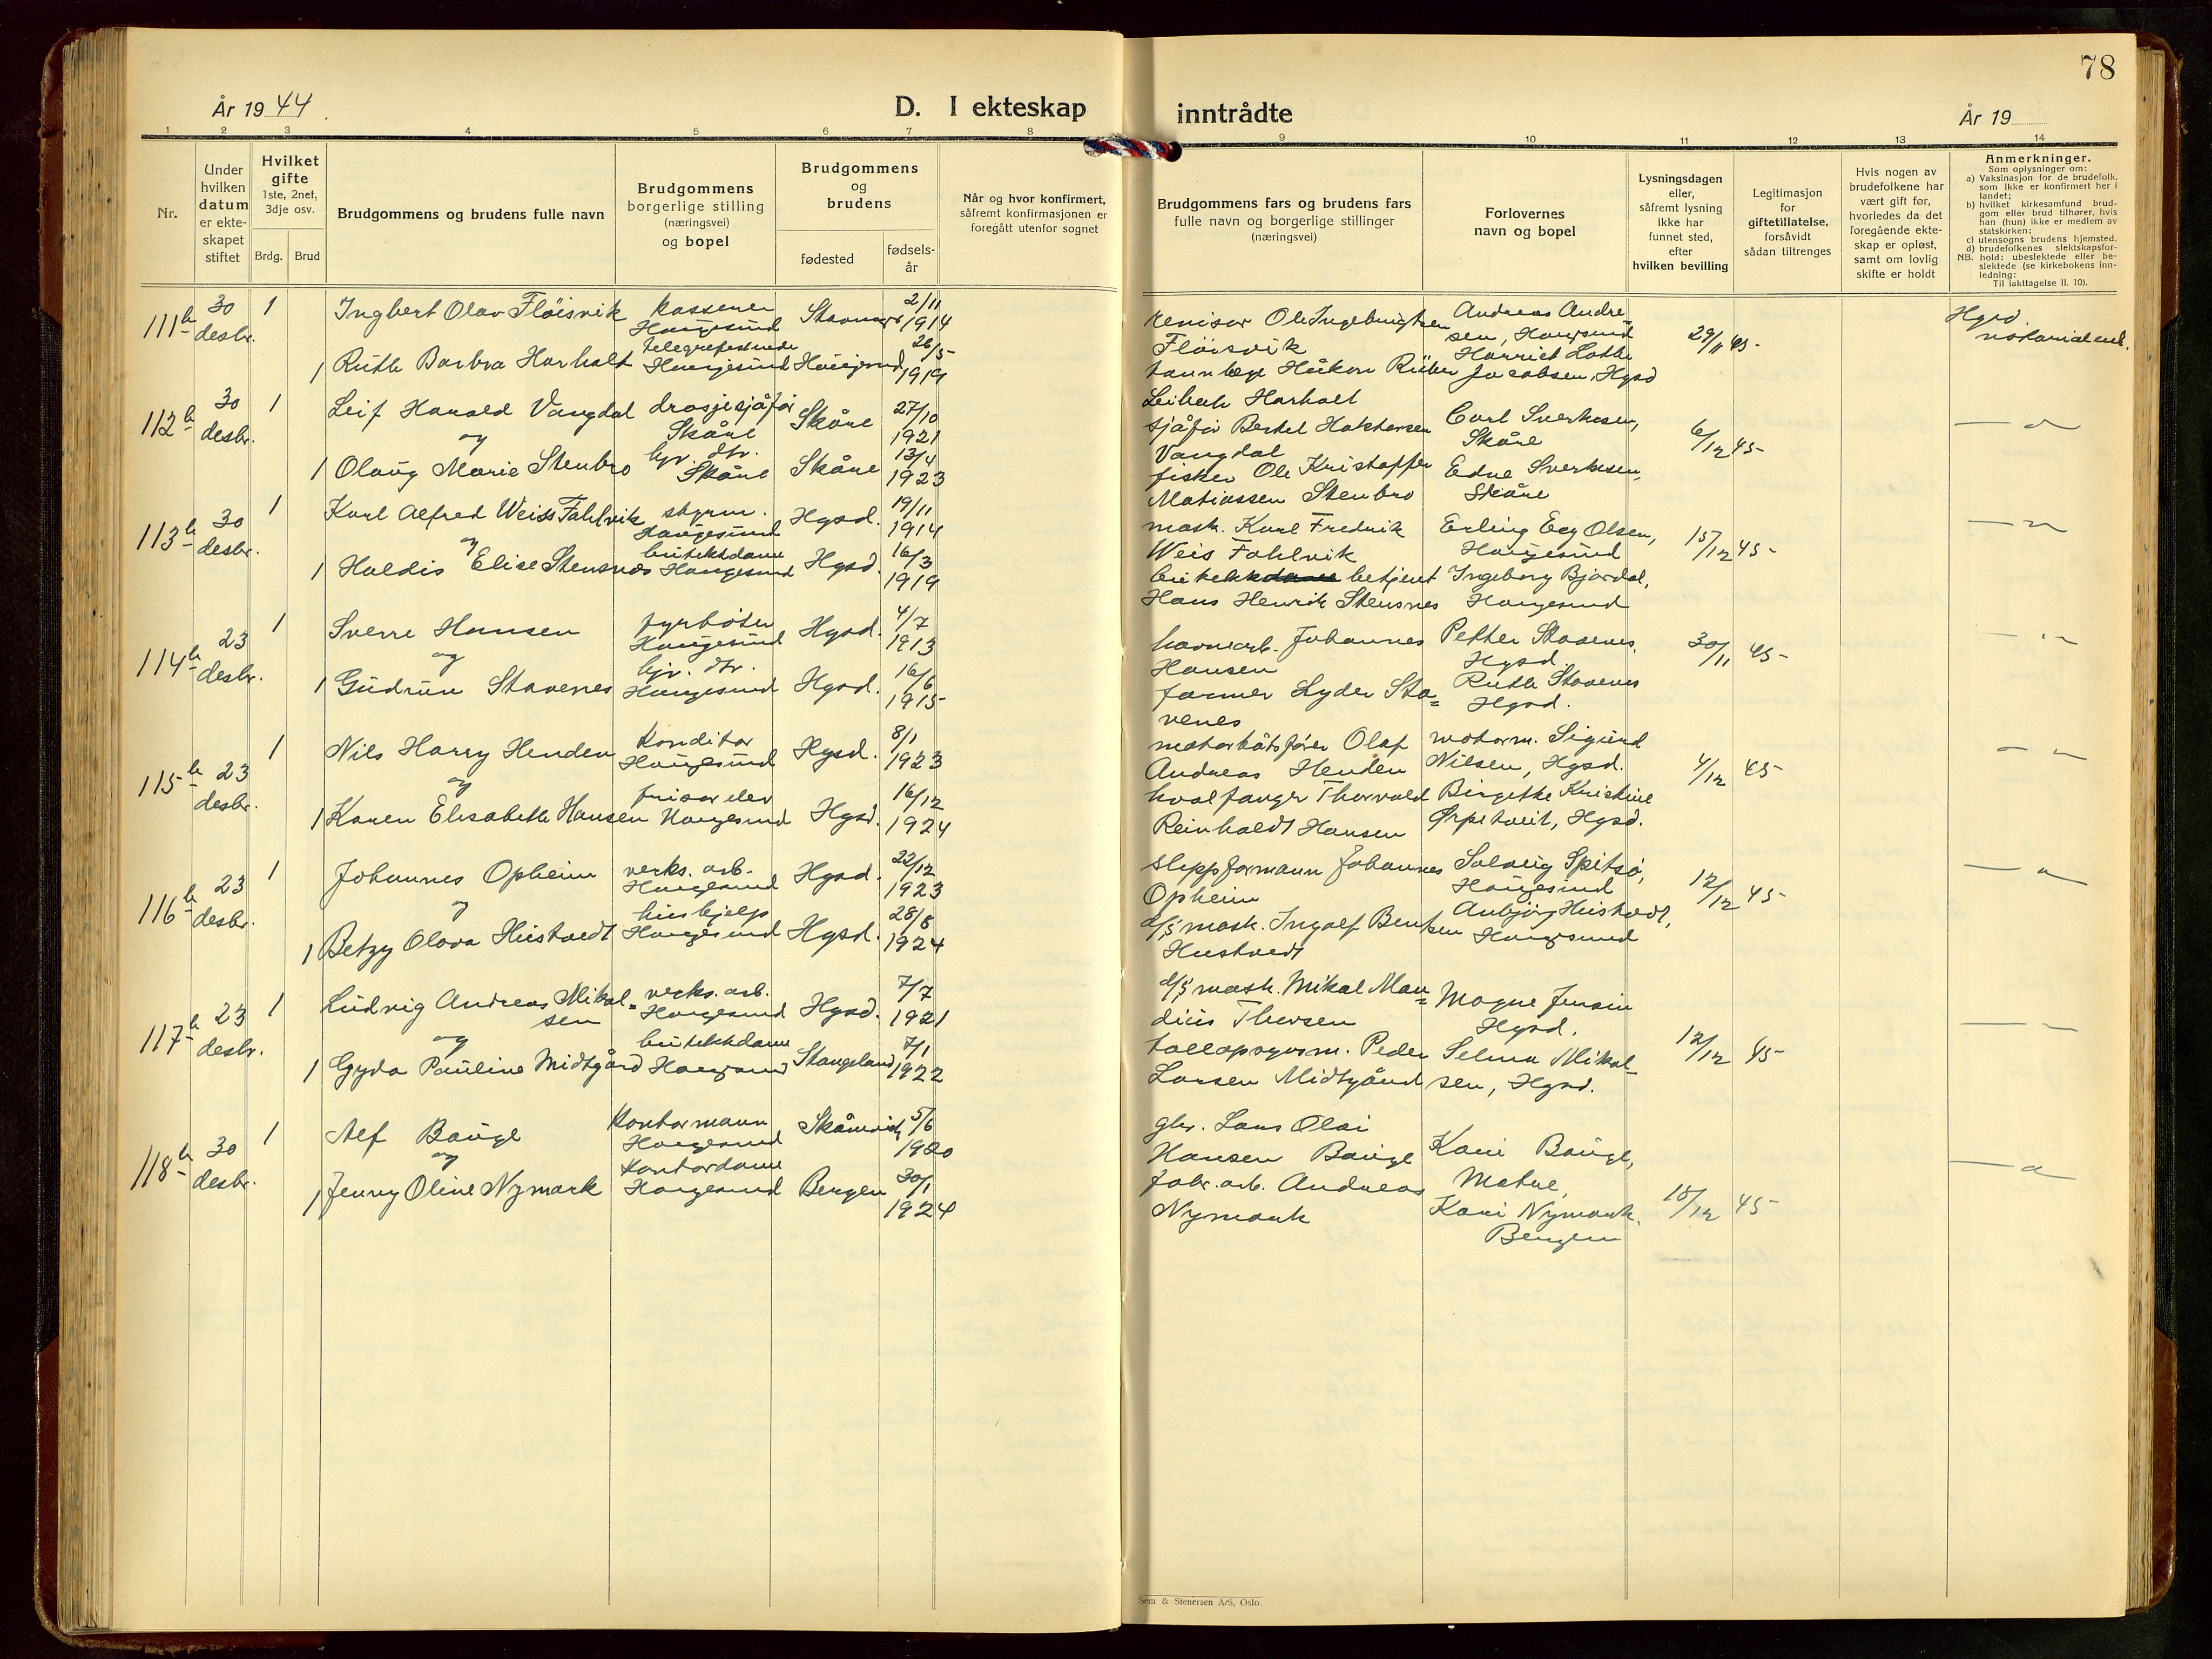 78
År 1944
D. I ekteskap inntrådte
År 19
1 2 3 4 5 6 7 8 9 10 11 12 13 14
Nr.
Under hvilken datum er ekteskapet stiftet
Hvilket gifte
1ste, 2net, 3dje osv.
Brdg. Brud
Brudgommens og brudens fulle navn
Brudgommens borgerlige stilling (næringsvei) og bopel
Brudgommens og brudens
fødested
fødselsår
Når og hvor konfirmert, såfremt konfirmasjonen er foregått utenfor sognet
Brudgommens fars og brudens fars fulle navn og borgerlige stillinger (næringsvei)
Forlovernes navn og bopel
Lysningsdagen eller, såfremt lysning ikke har funnet sted, efter hvilken bevilling
Legitimasjon for giftetillatelse, forsåvidt sådan tiltrenges
Hvis nogen av brudefolkene har vært gift før, hvorledes da det foregående ekteskap er opløst, samt om lovlig skifte er holdt
Anmerkninger.
Som oplysninger om:
a) Vaksinasjon for de brudefolk, som ikke er konfirmert her i landet;
b) hvilket kirkesamfund brudgom eller brud tilhører, hvis han (hun) ikke er medlem av statskirken;
c) utensogns brudens hjemsted.
d) brudefolkenes slektskapsforhold: ubeslektede eller beslektede (se kirkebokens innledning:
NB.
Til iakttagelse II. 10).
111b 30 desbr. 1 Ingbert Olav Flöisvik kasserer Haugesund Stavanger 2/11 1914
1 Ruth Barbra Harholt telegrafistinde Haugesund Haugesund 26/5 1919
revisor Ole Ingebrigtsen Flöisvik
tannlege Håkon Leibach Harholt
Andreas Andresen, Haugesund
Harriet Lothe Jacobsen, Hgsd
29/11 45
Hgsd notorialend.
112b 30 desbr. 1 Leif Harald Vangdal drosjesjåfør Skåre Skåre 27/10 1921
og
1 Olaug Marie Stenbro hjv. dtr. Skåre Skåre 13/4 1923
sjåfør Bertel Vangdal
fisker Ole Kristoffer Matiassen Stenbro
Carl Sverkesen, Skåre
Edne Sverkesen, Skåre
6/12 45
— " —
113b 30 desbr. 1 Karl Alfred Weiss Fahlvik styrm. Haugesund Hgsd. 19/11 1914
og
1 Haldis Elise Stensnes butikkdame Haugesund Hgsd. 16/3 1919
mask. Karl Fredrik Weis Fahlvik
butikk betjent Hans Henrik Stensnes
Erling Eeg Olsen, Haugesund
Ingeborg Bjordal, Haugesund
15/12 45
— " —
114b 23 desbr. 1 Sverre Hansen fyrbøter Haugesund Hgsd. 4/7 1913
og
1 Gudrun Stavenes hjv. dtr. Haugesund Hgsd. 16/6 1915
havnearb. Johannes Hansen
farmer Lyder Stavenes
Petter Stavenes, Hgsd.
Ruth Stavenes Hgsd.
30/11 45
— " —
115b 23 desbr. 1 Nils Harry Henden Konditor Haugesund Hgsd. 8/1 1923
og
1 Karen Elisabeth Hansen frisør elev Haugesund Hgsd. 16/12 1924
motorbåtsfører Olaf Andreas Henden
hvalfanger Thorvald Reinholdt Hansen
motorm. Sigurd Nilsen, Hgsd.
Birgitte Kristine Ørpetveit, Hgsd.
4/12 45
— " —
116b 23 desbr. 1 Johannes Opheim verks. arb. Haugesund Hgsd. 22/12 1923
og
1 Betzy Olava Hustvedt hushjelp Haugesund Hgsd. 28/8 1924
slippformann Johannes Opheim
d/s mask. Ingolf Bentsen Hustvedt
Solveig Spitsø, Haugesund
Anbjörg Hustvedt, Haugesund
12/12 45
— " —
117b 23 desbr. 1 Ludvig Andreas Mikalsen verks. arb. Haugesund Hgsd. 7/7 1921
og
1 Gyda Pauline Midtgård butikkdame Haugesund Stangeland 7/1 1922
d/s mask. Mikal Mandius Thorsen
tollopsynsm. Peder Larsen Midtgård
Magne Jensen Hgsd.
Selma Mikalsen, Hgsd.
12/12 45
— " —
118b 30 desbr. 1 Alf Bauge Kontormann Haugesund 5/6 1920
og
1 Jenny Oline Nymark Kontordame Haugesund Bergen 30/1 1924
gbr. Lars Olai Hansen Bauge
fabr. arb. Andreas Nymark
Kari Bauge, Matre,
Kari Nymark, Bergen
15/12 45
— " —
Sem & Stenersen A/S, Oslo.